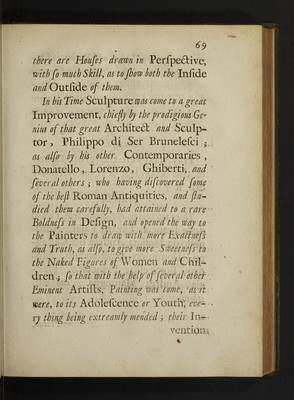 69
there are Houſes drawn in Perſpective,
with ſo much Skill, as to ſhow both the Inſide
and Outſide of them.
In his Time Sculpture was come to a great
Improvement, chiefly by the prodigious Ge-
nius of that great Architect and Sculp-
tor, Philippo di Ser Bruneleſci ;
as alſo by his other Contemporaries ,
Donatello , Lorenzo, Ghiberti, and
ſeveral others ; who having diſcovered ſome
of the beſt Roman Antiquities, and ſtu-
died them carefully, had attained to a rare
Boldneſs in Deſign, and opened the way to
the Painters to draw with more Exactneſs
and Truth, as alſo, to give more Sweetneſs to
the Naked Figures of Women and Chil-
dren ; ſo that with the help of ſeveral other
Eminent Artiſts, Painting was come, as it
were, to its Adoleſcence or Youth; eve-
ry thing being extreamly mended ; their In-
vention